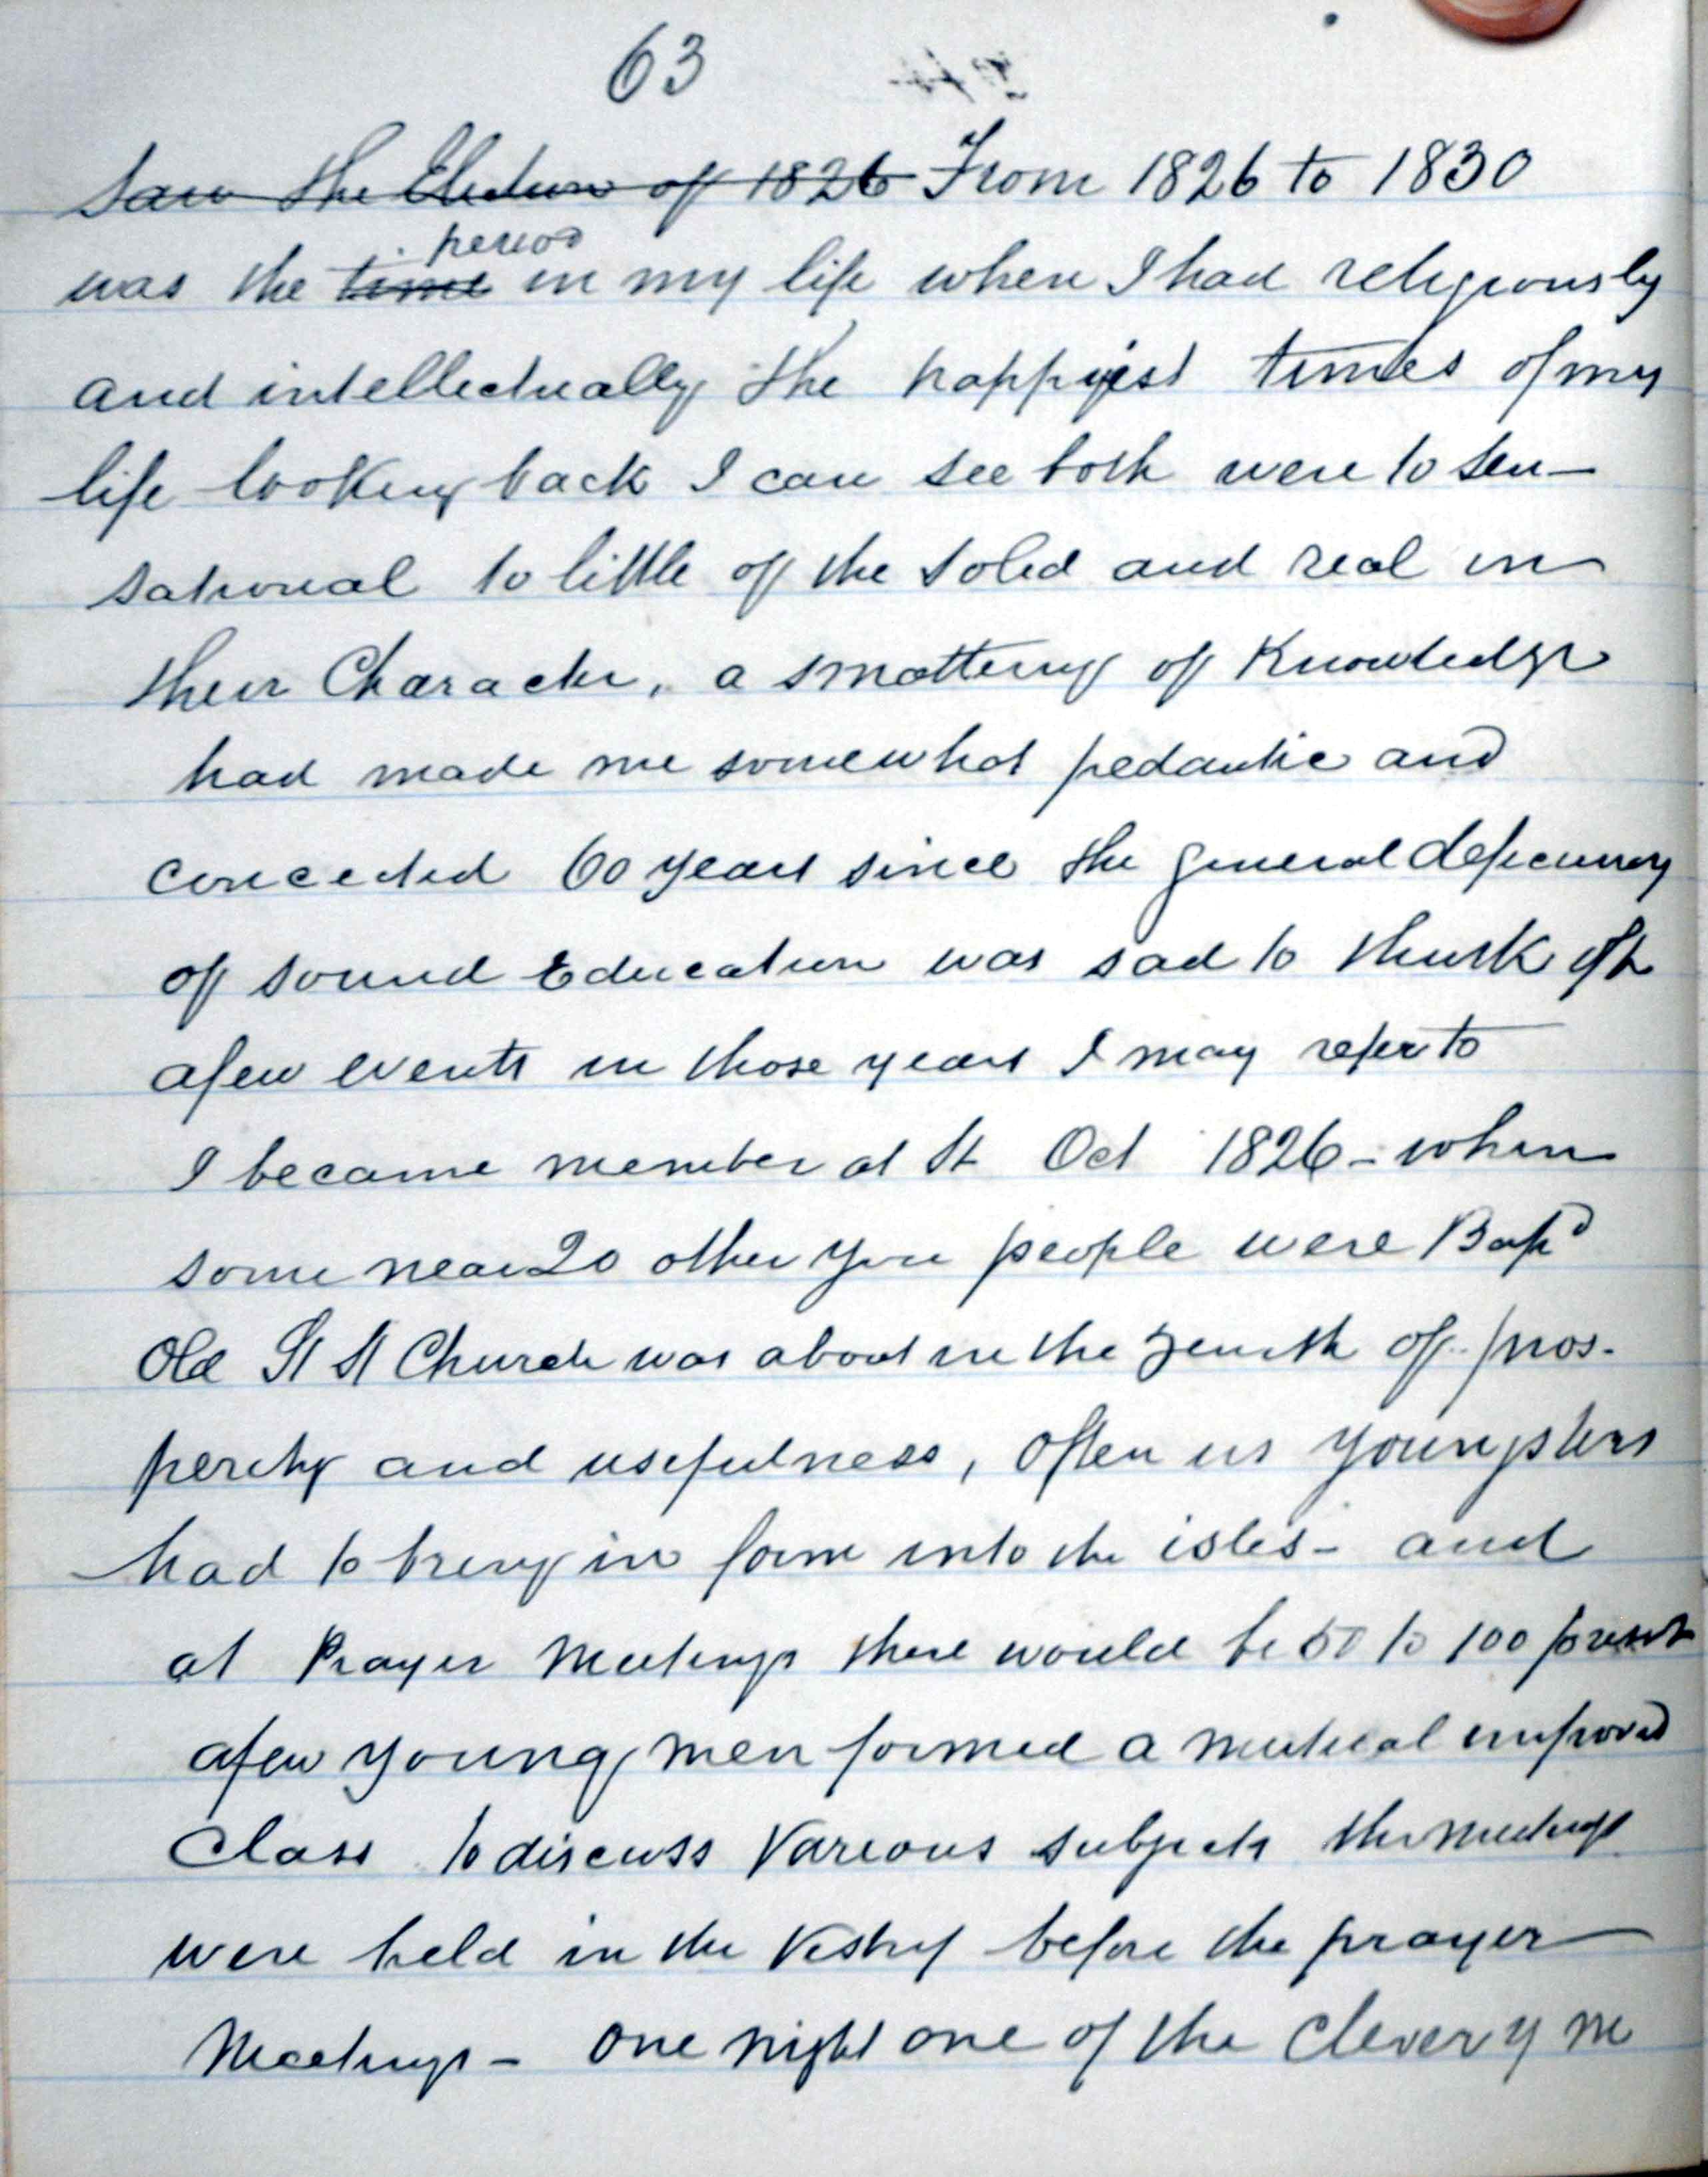 63
Saw the Election of 1826 From 1826 to 1830
period
was the time in my life when I had religiously
and intellectually the happyest times of my
life looking back I can see both were to sen-
sational to little of the solid and real in
their Character, a smattering of Knowledge
had made me somewhat pedantic and
conceited 60 years since the general deficiency
of sound Education was sad to think of
afew events in those years I may refer to
I became member at St Oct 1826 - when
some near 20 other people were Bapd
Old St St Church was about in the zenith of pros-
perity and usefulness, often us youngsters
had to bring in form into the isles - and
at Prayer Meetings there would be 50 to 100 present
afew young men formed a mutual improvd
Class to discuss Various subjects the meetings
were held in the Vestry before the prayer
Meetings - one night one of the clever y m